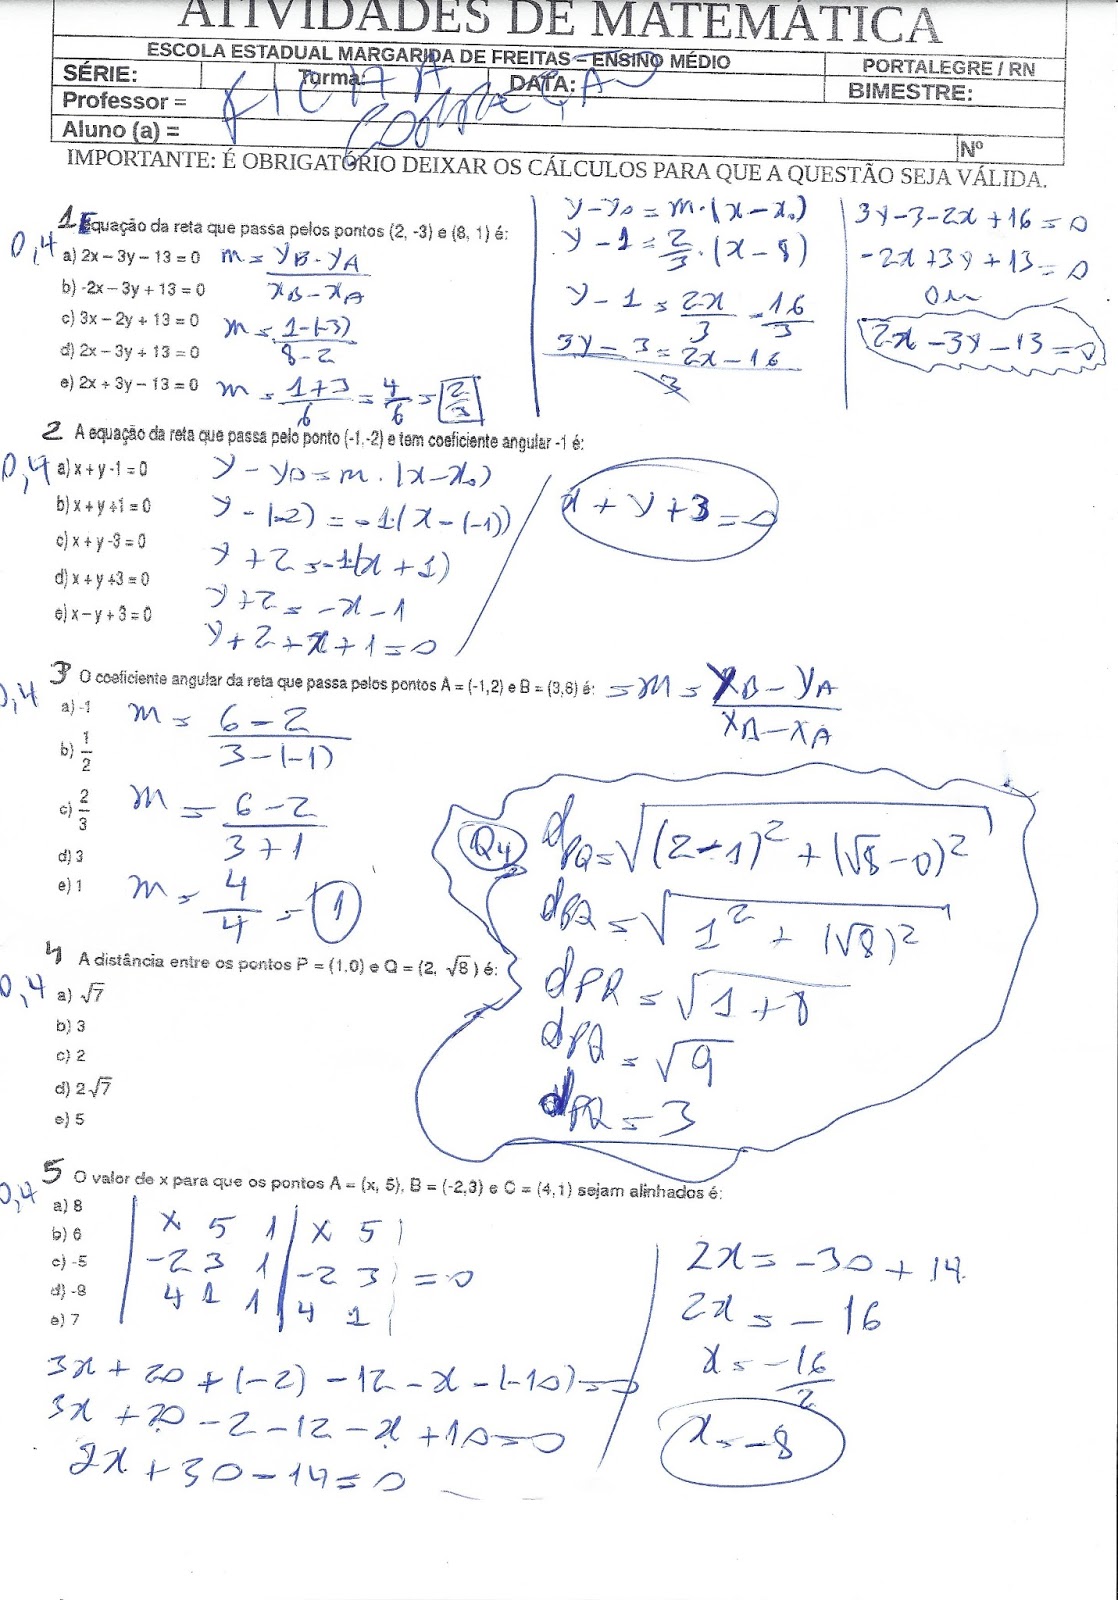 ATIVIDADES DE MATEMÁTICA
ESCOLA ESTADUAL MARGARIDA DE FREITAS – ENSINO MÉDIO
PORTALEGRE / RN
SÉRIE:
Turma:
DATA:
BIMESTRE:
Professor =
FICHA
CORREÇÃO
Aluno (a) =
Nº
IMPORTANTE: É OBRIGATÓRIO DEIXAR OS CÁLCULOS PARA QUE A QUESTÃO SEJA VÁLIDA.
1 Equação da reta que passa pelos pontos (2, -3) e (8, 1) é:
0,4
a) 2x – 3y – 13 = 0
b) -2x – 3y + 13 = 0
c) 3x – 2y + 13 = 0
d) 2x – 3y + 13 = 0
e) 2x + 3y – 13 = 0
m = yB - yA / xB - xA
m = 1-(-3) / 8-2
m = 1+3 / 6 = 4/6 = 2/3
y - y0 = m·(x - x0)
y - 1 = 2/3 · (x - 8)
y - 1 = 2x/3 - 16/3
3y - 3 = 2x - 16 / 3
3y - 3 - 2x + 16 = 0
-2x + 3y + 13 = 0
ou
2x - 3y - 13 = 0
2 A equação da reta que passa pelo ponto (-1,-2) e tem coeficiente angular -1 é:
0,4
a) x + y -1 = 0
b) x + y +1 = 0
c) x + y -3 = 0
d) x + y +3 = 0
e) x – y + 3 = 0
y - y0 = m · (x - x0)
y - (-2) = -1·(x - (-1))
y + 2 = -1·(x + 1)
y + 2 = -x - 1
y + 2 + x + 1 = 0
x + y + 3 = 0
3 O coeficiente angular da reta que passa pelos pontos A = (-1,2) e B = (3,6) é: = m = yB - yA / xB - xA
0,4
a) -1
b) 1/2
c) 2/3
d) 3
e) 1
m = 6 - 2 / 3 - (-1)
m = 6 - 2 / 3 + 1
m = 4/4 = 1
4 A distância entre os pontos P = (1,0) e Q = (2, √8) é:
0,4
a) √7
b) 3
c) 2
d) 2√7
e) 5
Q4
dPQ = √(2-1)² + (√8 - 0)²
dPQ = √1² + (√8)²
dPQ = √1 + 8
dPQ = √9
dPQ = 3
5 O valor de x para que os pontos A = (x, 5), B = (-2,3) e C = (4,1) sejam alinhados é:
0,4
a) 8
b) 6
c) -5
d) -8
e) 7
x 5 1 | x 5
-2 3 1 | -2 3 = 0
4 1 1 | 4 1
3x + 20 + (-2) - 12 - x - (-10) = 0
3x + 20 - 2 - 12 - x + 10 = 0
2x + 30 - 14 = 0
2x = -30 + 14
2x = -16
x = -16/2
x = -8